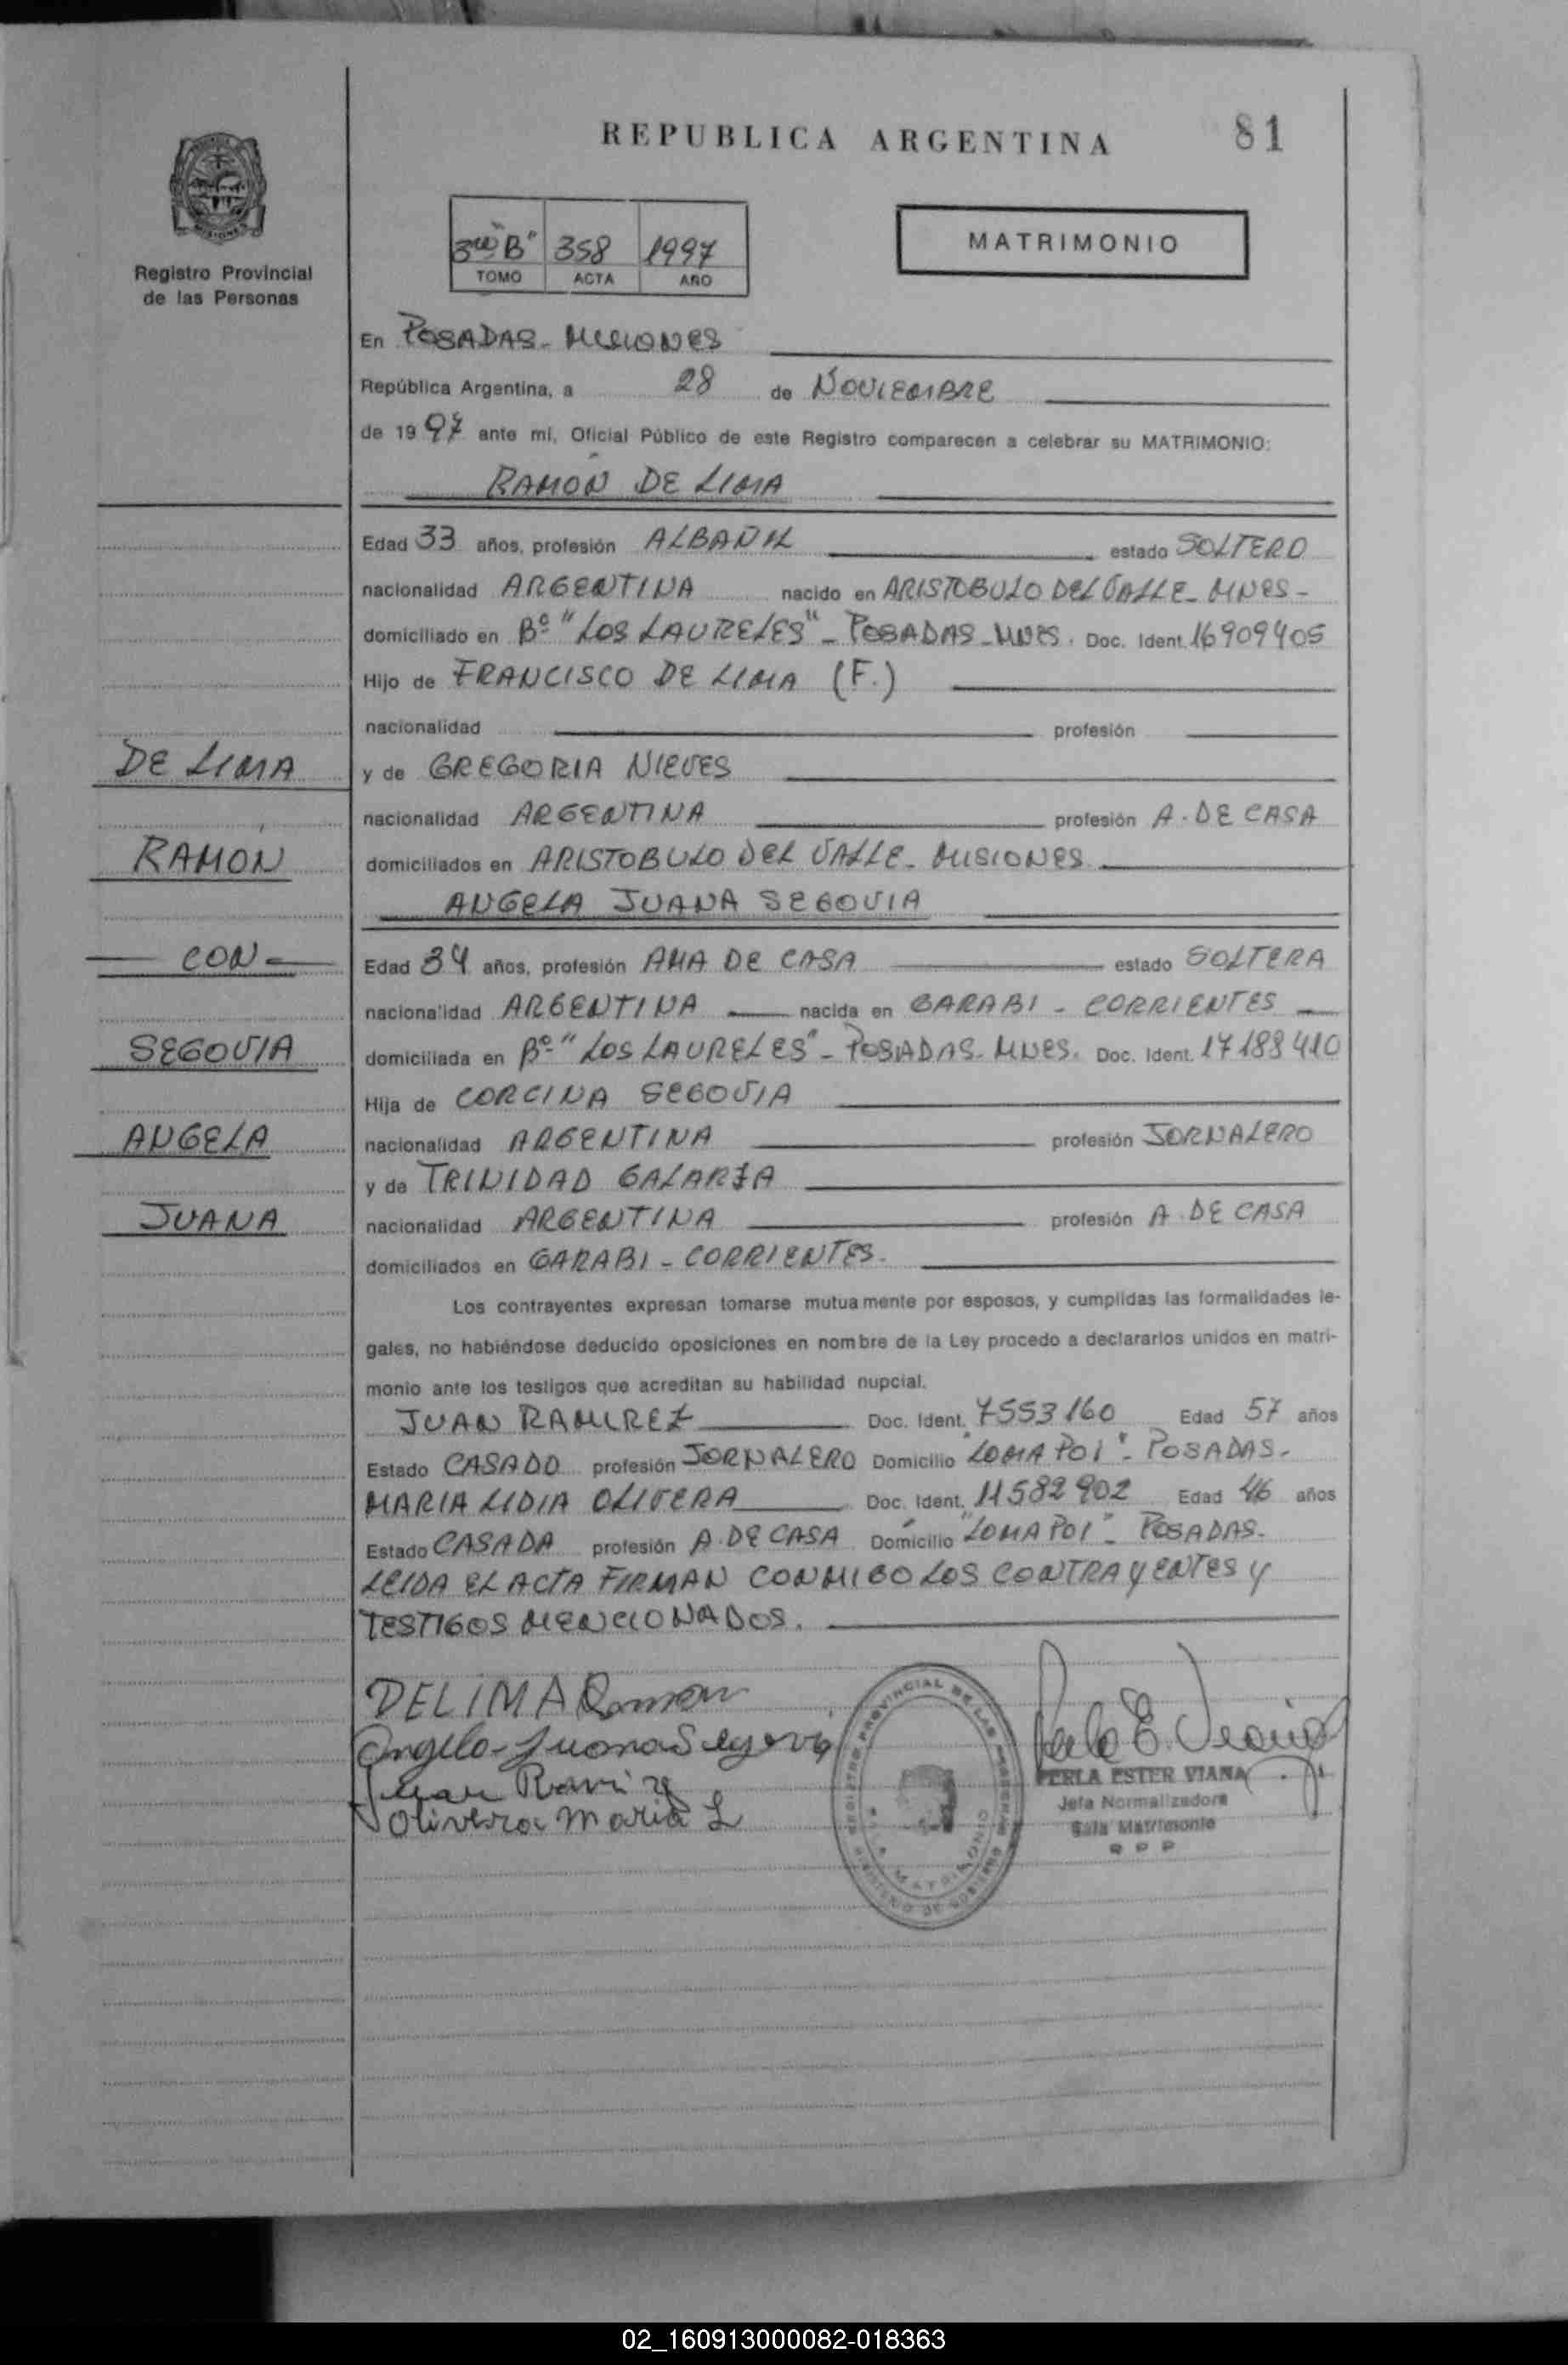 REPUBLICA ARGENTINA
81
Registro Provincial
de las Personas
3ro "B" 358 1997
TOMO ACTA AÑO
MATRIMONIO
En POSADAS - MISIONES
República Argentina, a 28 de NOVIEMBRE
de 1997 ante mi, Oficial Público de este Registro comparecen a celebrar su MATRIMONIO:
RAMON DE LIMA
Edad 33 años, profesión ALBAÑIL estado SOLTERO
nacionalidad ARGENTINA nacido en ARISTOBULO DEL VALLE - MNES -
domiciliado en Bº "LOS LAURELES" - POSADAS - MNES. Doc. Ident. 16909405
Hijo de FRANCISCO DE LIMA (F.)
nacionalidad profesión
DE LIMA
y de GREGORIA NIEVES
nacionalidad ARGENTINA profesión A. DE CASA
RAMÓN
domiciliados en ARISTOBULO DEL VALLE - MISIONES
ANGELA JUANA SEGOVIA
- CON -
Edad 34 años, profesión AMA DE CASA estado SOLTERA
nacionalidad ARGENTINA nacida en GARABI - CORRIENTES
SEGOVIA
domiciliada en Bº "LOS LAURELES" - POSADAS - MNES. Doc. Ident. 17188410
Hija de CORCINA SEGOVIA
ANGELA
nacionalidad ARGENTINA profesión JORNALERO
y de TRINIDAD GALARZA
JUANA
nacionalidad ARGENTINA profesión A. DE CASA
domiciliados en GARABI - CORRIENTES.
Los contrayentes expresan tomarse mutuamente por esposos, y cumplidas las formalidades le-
gales, no habiéndose deducido oposiciones en nombre de la Ley procedo a declararlos unidos en matri-
monio ante los testigos que acreditan su habilidad nupcial.
JUAN RAMIREZ Doc. Ident. 7553160 Edad 57 años
Estado CASADO profesión JORNALERO Domicilio "LOMA POI" - POSADAS.
MARIA LIDIA OLIVERA Doc. Ident. 11582902 Edad 46 años
Estado CASADA profesión A. DE CASA Domicilio "LOMA POI" - POSADAS.
LEIDA EL ACTA FIRMAN CONMIGO LOS CONTRAYENTES Y
TESTIGOS MENCIONADOS.
DELIMA Ramon
Angela Juana Segovia
Juan Ramirez
Olivera Maria L
REGISTRO PROVINCIAL DE LAS PERSONAS
SALA MATRIMONIO
MINISTERIO DE GOBIERNO
Perla E. Viana
PERLA ESTER VIANA
Jefa Normalizadora
Sala Matrimonio
R P P
02_160913000082-018363